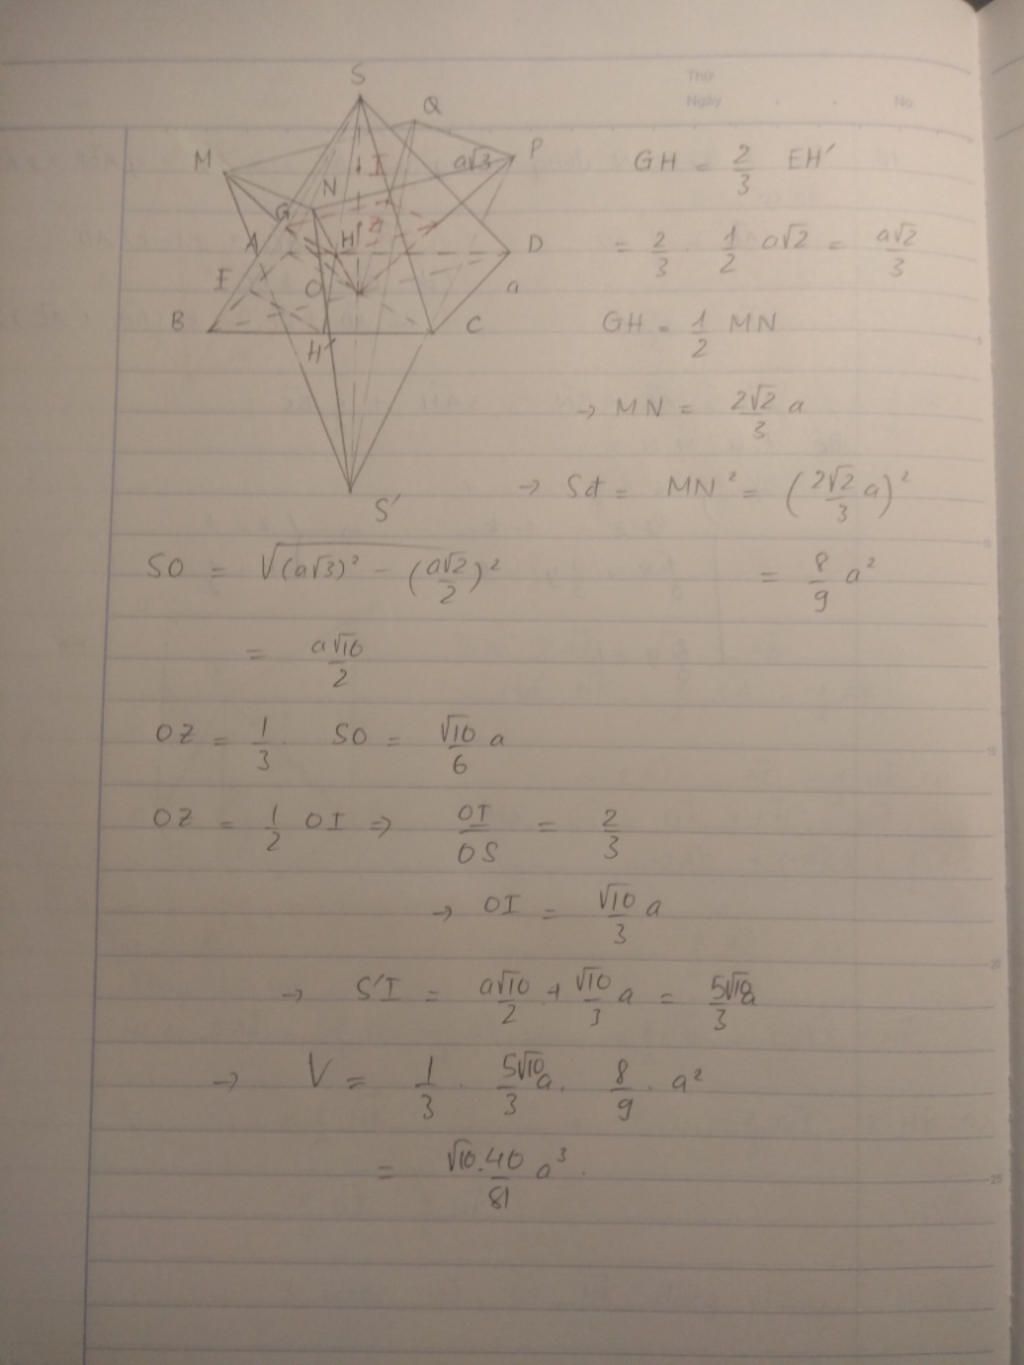 Thứ
Ngày . . No
S
Q
M
I
a√3
P
N
G
Z
A
H
D
E
O
a
B
C
H'
S'
GH = 2/3 EH'
= 2/3 . 1/2 a√2 = a√2/3
GH = 1/2 MN
→ MN = 2√2/3 a
→ Sđ = MN² = (2√2/3 a)²
= 8/9 a²
SO = √(a√3)² - (a√2/2)²
= a√10/2
OZ = 1/3 . SO = √10/6 a
OZ = 1/2 OI ⇒ OI/OS = 2/3
→ OI = √10/3 a
→ S'I = a√10/2 + √10/3 a = 5√10a/3
→ V = 1/3 . 5√10/3 a . 8/9 . a²
= √10.40/81 a³ .